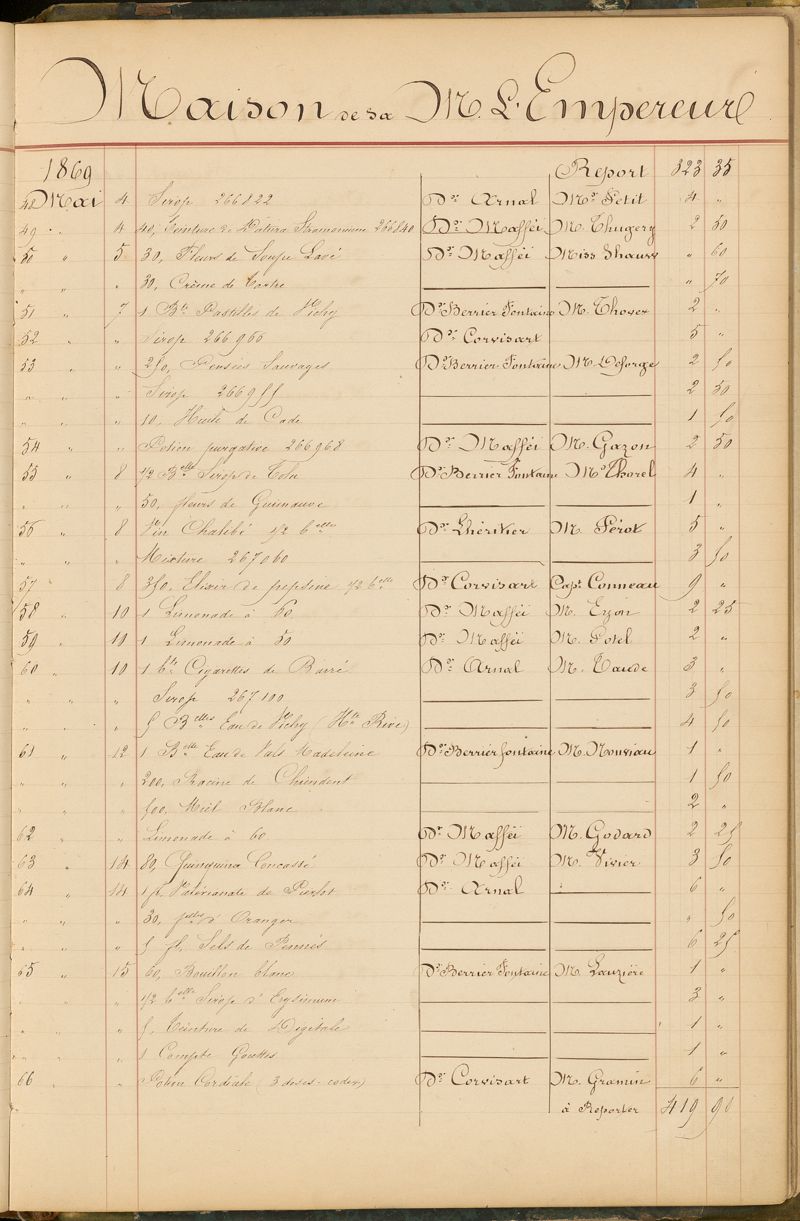 Maison de sa M. L'Empereur
1869 Report 323 35
48 Mai 4 Sirop 266822 Dr. Arnal Me. Petit 4 "
49 " 4 40, Teinture de Datura Stramonium 266840 Dr. Mafféi M. Thugery 2 50
50 " 5 30, Fleurs de Soufre Lavé Dr. Mafféi Miss " 60
" " " 30, Crème de Tartre " 70
51 " 7 1 Bte Pastilles de Vichy Dr. Berrier Fontaine M. 2 "
52 " " Sirop 266966 Dr. Corvisart 5 "
53 " " 250, Pensées Sauvages Dr. Berrier Fontaine M. Deforge 2 50
" " " Sirop 266955 2 50
" " " 10, Huile de Cade 1 50
54 " " Potion purgative 266968 Dr. Mafféi M. Gazon 2 50
55 " 8 1/2 Blle Sirop de Tolu Dr. Berrier Fontaine Me. Thorel 4 "
" " " 50, fleurs de Guimauve 1 "
56 " 8 Vin Chalibé 1/2 blle Dr. Lhéritier M. Pérot 5 "
" " " Mixture 267060 3 50
57 8 350, Elixir de pepsine 1/2 blle Dr. Corvisart Capt. Conneau 9 "
58 " 10 1 Limonade à 60 Dr. Mafféi M. 2 25
59 " 10 1 Limonade à 50 Dr. Mafféi M. 2 "
60 " 10 1 bte Cigarettes de Barré Dr. Arnal M. Taude 3 "
" " " Sirop 267100 3 50
" " " 5 Blles Eau de Vichy (Hte Rive) 4 50
61 " 12 1 Blle Eau de Vals Madeleine Dr. Berrier fontaine M. 1 "
" " " 200, Racine de Chiendent 1 50
" " " 500, Miel Blanc 2 "
62 " " Limonade à 60 Dr. Mafféi M. Godard 2 25
63 " 14 80, Quinquina Concassé Dr. Mafféi M. Vivier 3 50
64 " 14 1 fl. Valérianate de Pierlot Dr. Arnal 6 "
" " " 30, flles d'Oranger " 50
" " " 5 fl. Sels de Pennès 6 25
65 " 15 60, Bouillon blanc Dr. Berrier Fontaine M. Lauzière 1 "
" " " 1/2 blle Sirop d'Erysimum 3 "
" " " 5, Teinture de Digitale 1 "
" " " 1 Compte Gouttes 1 "
66 " Potion Cordiale (3 doses-codex) Dr. Corvisart M. Gramin 6 "
à Reporter 419 90